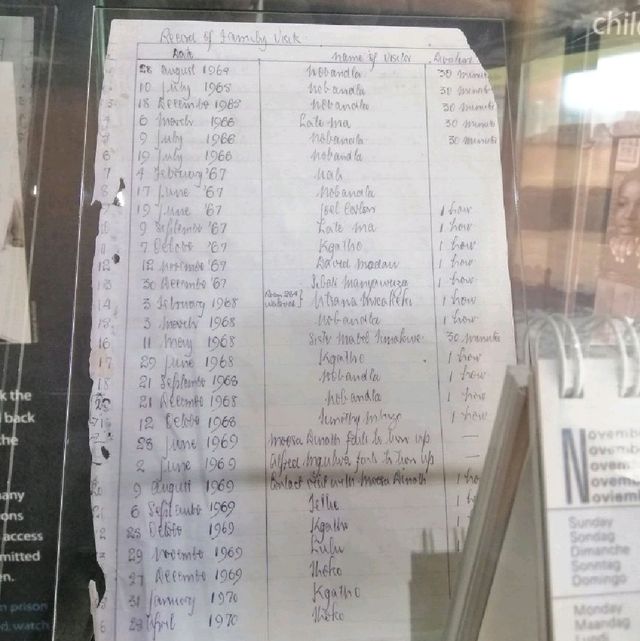 child
Record of Family Visits
Date Name of Visitor Duration
28 August 1964 Nobandla 30 minutes
10 July 1965 Nobandla 30 minutes
18 Decembe 1965 Nobandla 30 minutes
6 March 1966 Late Ma 30 minutes
9 July 1966 Nobandla 30 minutes
6 19 July 1966 Nobandla
7 4 February '67 Nali
8 17 June '67 Nobandla
9 19 June '67 Joel Carlson 1 hour
10 9 Septembe '67 Late Ma 1 hour
7 Octobe '67 Kgatho 1 hour
12 12 Novembe '67 David Madau 1 hour
30 Decembe '67 Sibali 1 hour
14 3 February 1968 1 hour
3 March 1968 Nobandla 1 hour
16 11 May 1968 Sister Mabel 30 minutes
17 29 June 1968 Kgatho 1 hour
18 21 Septembe 1968 Nobandla 1 hour
21 Decembe 1968 Nobandla 1 hour
12 Octobe 1968 Timothy Mbuzo 1 hour
28 June 1969 Moosa Dinath fails to turn up —
2 June 1969 Alfred Mgulwa fails to turn up —
9 August 1969 Contact visit with Moosa Dinath 1 ho
6 Septembe 1969 Tellie 1
Octobe 1969 Kgatho
29 Novembe 1969 Lulu
27 Decembe 1969 Thoko
31 January 1970 Kgatho
April 1970 Thoko
k the
back
the
any
ons
access
mitted
en.
n prison
d, watch
Novembe
Novembe
Novem
Novembe
Noviem
Sunday
Sondag
Dimanche
Sonntag
Domingo
Monday
Maandag
Lundi